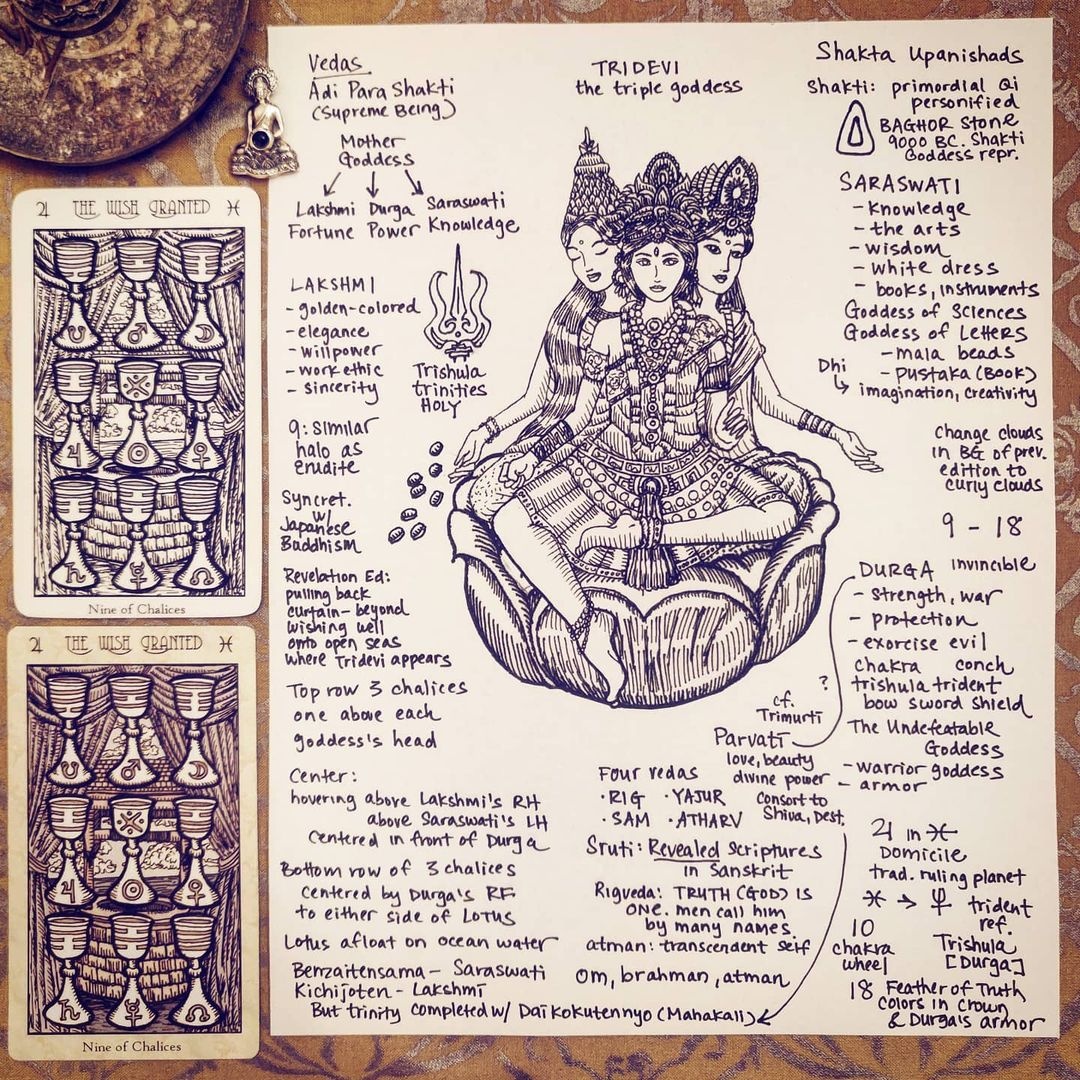 ♃ THE WISH GRANTED ♓
Nine of Chalices
♃ THE WISH GRANTED ♓
Nine of Chalices
Vedas
Adi Para Shakti
(Supreme Being)
Mother
Goddess
Lakshmi Durga Saraswati
Fortune Power Knowledge
LAKSHMI
- golden-colored
- elegance
- willpower
- work ethic
- sincerity
Trishula
trinities
HOLY
9: similar
halo as
erudite
Syncret.
w/
Japanese
Buddhism
Revelation Ed:
pulling back
curtain - beyond
wishing well
onto open seas
where Tridevi appears
Top row 3 chalices
one above each
goddess's head
Center:
hovering above Lakshmi's RH
above Saraswati's LH
Centered in front of Durga
Bottom row of 3 chalices
centered by Durga's RF
to either side of LOTUS
Lotus afloat on ocean water
Benzaitensama - Saraswati
Kichijoten - Lakshmi
But trinity completed w/ Daikokutennyo (Mahakali)
TRIDEVI
the triple goddess
Shakta Upanishads
Shakti: primordial Qi
personified
BAGHOR Stone
9000 BC. Shakti
Goddess repr.
SARASWATI
- Knowledge
- the arts
- wisdom
- white dress
- books, instruments
Goddess of Sciences
Goddess of Letters
- mala beads
- pustaka (Book)
Dhi
↳ imagination, creativity
Change clouds
in BG of prev.
edition to
curly clouds
9 - 18
DURGA invincible
- strength, war
- protection
- exorcise evil
chakra conch
trishula trident
bow sword shield
The Undefeatable
Goddess
- warrior goddess
- armor
?
cf.
Trimurti
Parvati
love, beauty
divine power
consort to
Shiva, Dest.
Four Vedas
· RIG · YAJUR
· SAM · ATHARV
Sruti: Revealed Scriptures
in Sanskrit
Rigveda: TRUTH (GOD) IS
ONE. men call him
by many names.
atman: transcendent self
Om, brahman, atman
♃ in ♓
Domicile
trad. ruling planet
♓ → ♆ trident
ref.
Trishula
[Durga]
10
chakra
wheel
18 Feather of Truth
colors in crown
& Durga's armor